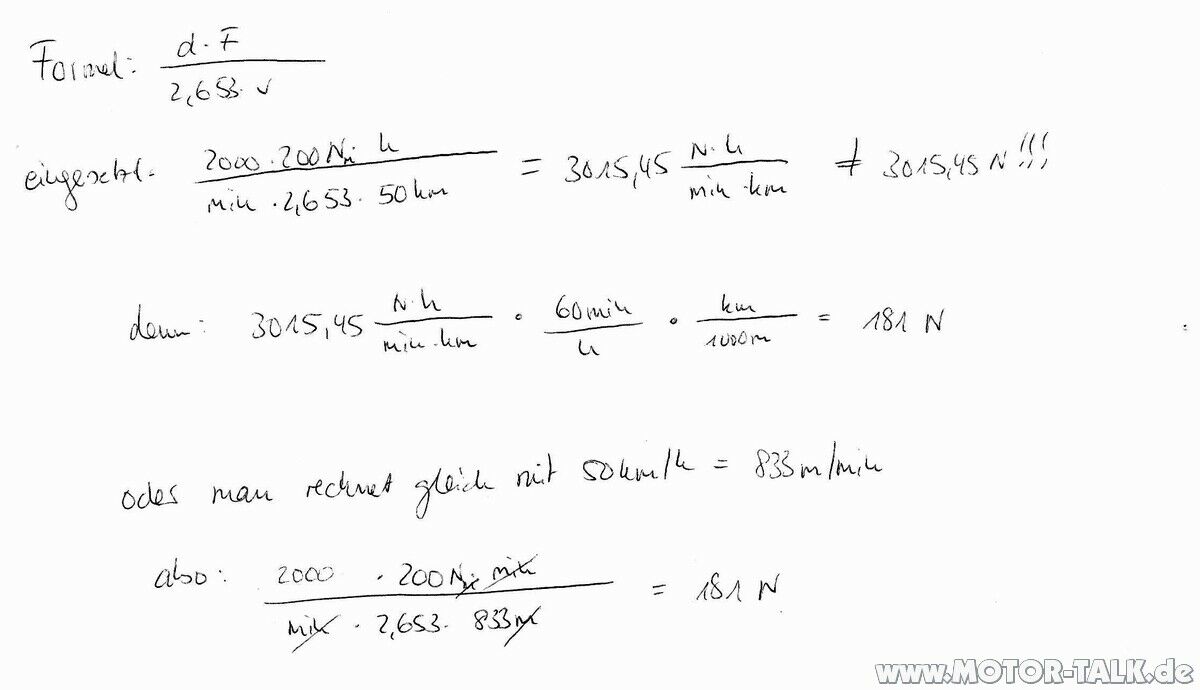 Formel: d · F / 2,653 · v
eingesetzt: 2000 · 200 Nm h / min · 2,653 · 50 km = 3015,45 N·h / min · km ≠ 3015,45 N!!!
denn: 3015,45 N·h / min · km · 60 min / h · km / 1000m = 181 N
oder man rechnet gleich mit 50 km/h = 833 m/min
also: 2000 · 200 Nm min / min · 2,653 · 833m = 181 N
www.MOTOR-TALK.de